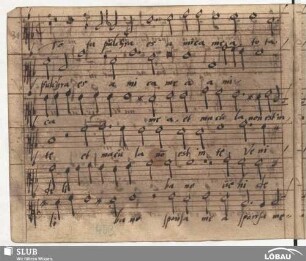 To ta pulchra es a mica mea to ta
pulchra es a mi ca me a a mi
ca me a et macula non est in
te et macu la non est in te Ve ni
de li ba no ve ni de
li ba no sponsa me a sponsa me
SLUB
Wir führen Wissen.
LÖBAU